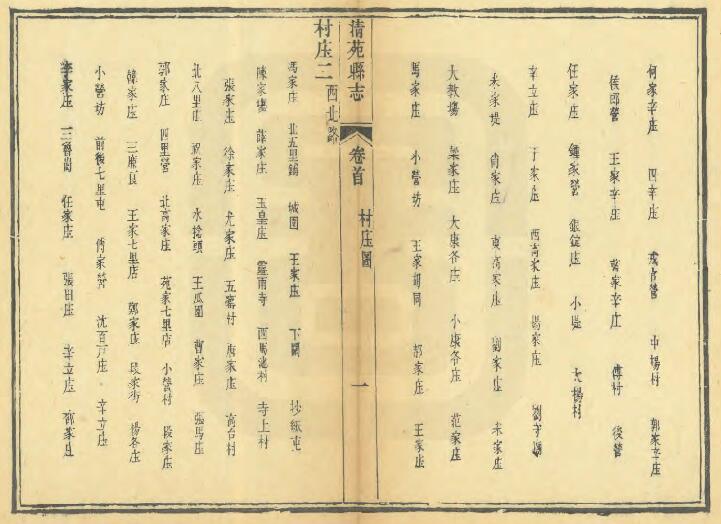 何家辛庄 四辛庄 戎官营 中楊村 郭家辛庄
侯郎營 王家辛庄 蔣家辛庄 傅村 後營
任家庄 鍾家營 銀錠庄 小堤 大楊村
辛立庄 于家庄 西高家庄 楊家庄 劉守廟
朱家堤 俞家庄 東高家庄 劉家庄 未家庄
大教塲 梁家庄 大康各庄 小康各庄 范家庄
馬家庄 小營坊 王家胡同 郝家庄 王家庄
清苑縣志 卷首 村庄圖 一
村庄二 西北路
馮家庄 北五里鋪 城圈 王家庄 下閘 抄紙屯
陳家塲 薛家庄 玉皇庄 靈雨寺 西馬池村 寺上村
張家庄 徐家庄 尤家庄 五窰村 唐家庄 高台村
北八里庄 祝家庄 水擔頭 王瓜園 曹家庄 張馬庄
郭家庄 四里營 北高家庄 苑家七里店 小營村 段家庄
韓家庄 三廒頁 王家七里店 鄭家庄 段家街 楊各庄
小營坊 前後七里屯 傅家營 沈百戶庄 辛立庄
李家庄 三富崗 任家庄 張田庄 辛立庄 鄧家庄